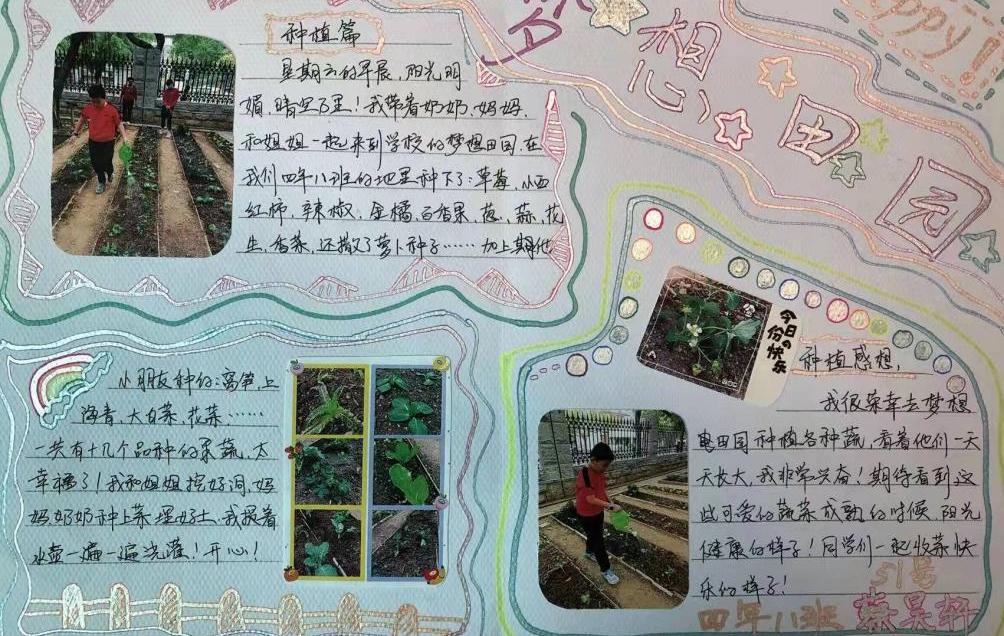 梦
想
田
园
种植篇
星期六的早晨,阳光明
媚,晴空万里!我带着奶奶、妈妈、
和姐姐一起来到学校的梦想田园,在
我们四年八班的地里种下了:草莓、小西
红柿、辣椒、金橘、百香果、葱、蒜、花
生、香菜,还撒了萝卜种子……加上期他
小朋友种的:莴笋、上
海青、大白菜、花菜……
一共有十几个品种的果蔬,太
幸福了!我和姐姐挖好洞,妈
妈奶奶种上菜埋好土,我提着
水壶一遍一遍浇灌!开心!
今日の
份快乐
种植感想,
我很荣幸去梦想
田园种植各种蔬,看着他们一天
天长大,我非常兴奋!期待看到这
些可爱的蔬菜成熟的时候,阳光
健康的样子!同学们一起收菜快
乐的样子!
51号
四年八班
昊轩